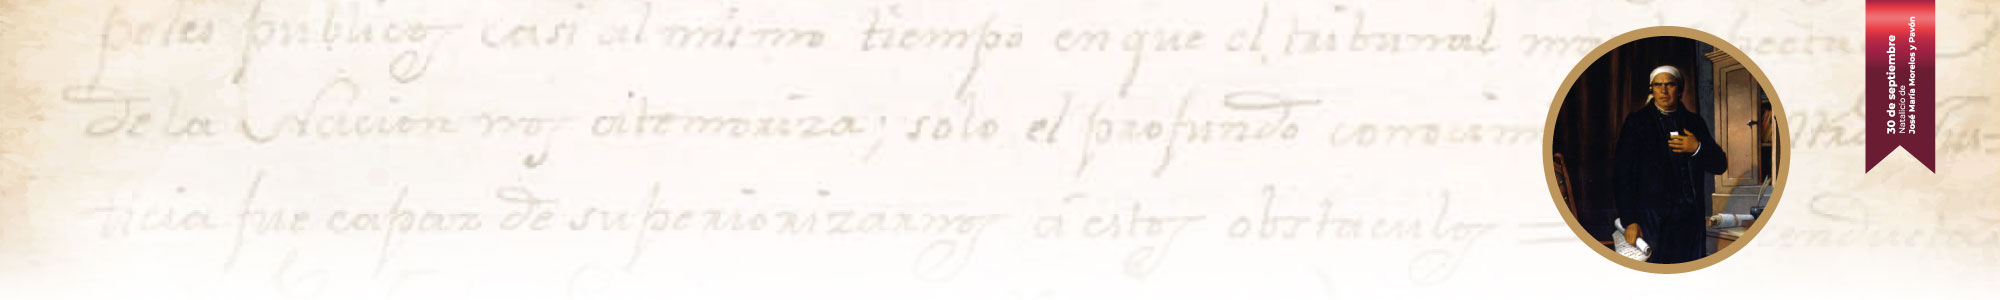 peles publicos casi al mismo tiempo en que el tribunal
de la Nacion nos atemoriza; solo el profundo
ticia fue capaz de superiorizarnos á estos obstaculos
30 de septiembre
Natalicio de
José María Morelos y Pavón